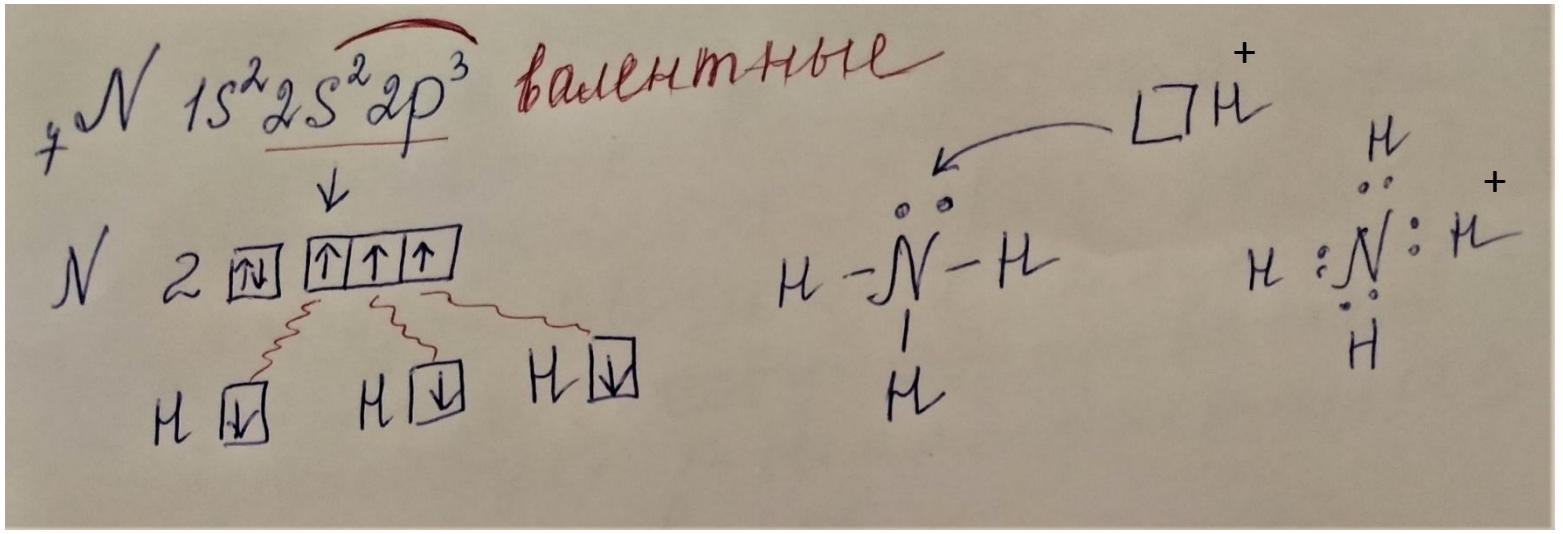 ₇N 1s² 2s² 2p³ валентные
N 2 ↑↓ ↑ ↑ ↑
H ↓ H ↓ H ↓
□ H⁺
H – N̈ – H
H
H
H : N : H ⁺
H